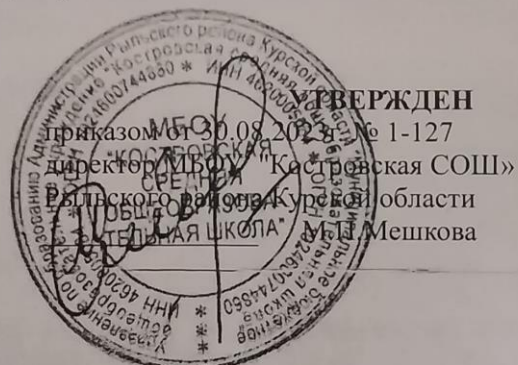 УТВЕРЖДЕН
приказом от 30.08.2023г. № 1-127
директор МБОУ "Костровская СОШ»
Рыльского района Курской области
М.П.Мешкова
МБОУ
"КОСТРОВСКАЯ
СРЕДНЯЯ
ОБЩЕОБРАЗОВА-
ТЕЛЬНАЯ ШКОЛА"